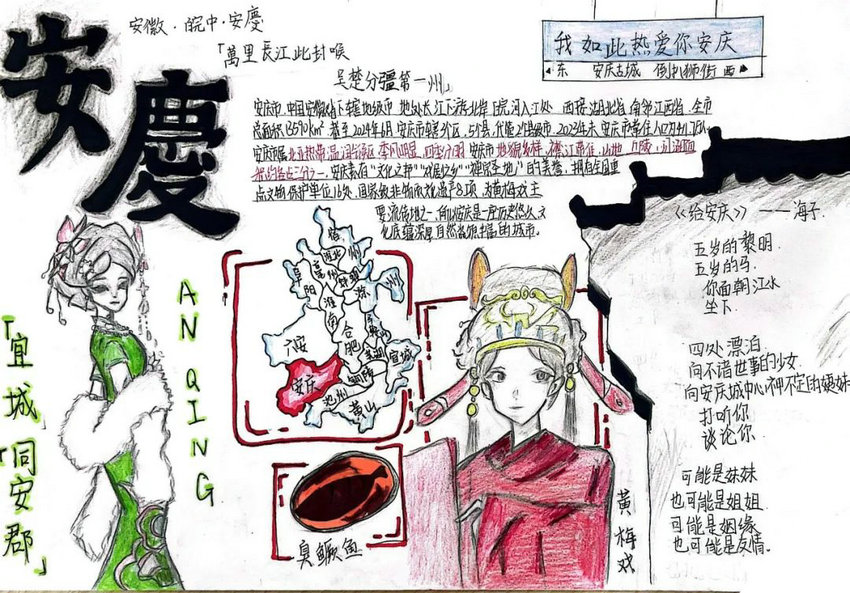 安徽·皖中·安慶
「萬里長江此封喉
吳楚分疆第一州」
安慶
我如此热爱你安庆
东 安庆古城 倒扒狮街 西
安庆市,中国安徽省下辖地级市 地处长江下游北岸 西接湖北省 南邻江西省 全市
总面积13590km² 截至2024年6月 安庆市辖3个区,5个县,代管2个县级市 2023年末 安庆市常住人口
安庆市属北亚热带温润季风区 季风明显,四季分明 安庆市地貌多样
安庆素有"文化之邦""戏剧之乡""禅宗圣地"的美誉,拥有全国重
点文物保护单位 处,国家级非物质文化遗产8项 为黄梅戏主
要流传地之一,向以安庆是一座历史悠久文
化底蕴深厚自然资源丰富的城市。
AN QING
「宜城」
「同安郡」
宿州
淮北
阜阳
淮南
六安
合肥
安庆
池州
铜陵
黄山
宣城
臭鳜鱼
黄梅戏
《给安庆》——海子
五岁的黎明
五岁的马
你面朝江水
坐下
四处漂泊
向不谙世事的少女
向安庆城中心神不定的姨妹
打听你
谈论你
可能是妹妹
也可能是姐姐
可能是姻缘
也可能是友情。